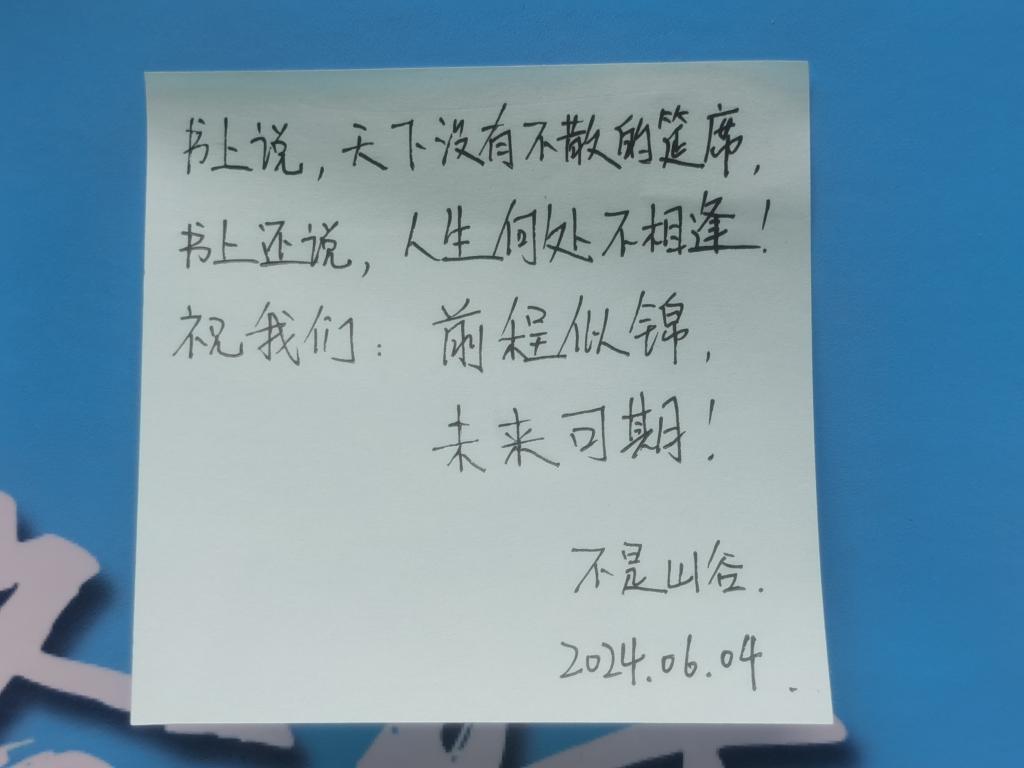 书上说，天下没有不散的筵席，
书上还说，人生何处不相逢！
祝我们：前程似锦，
未来可期！
不是山谷.
2024.06.04.